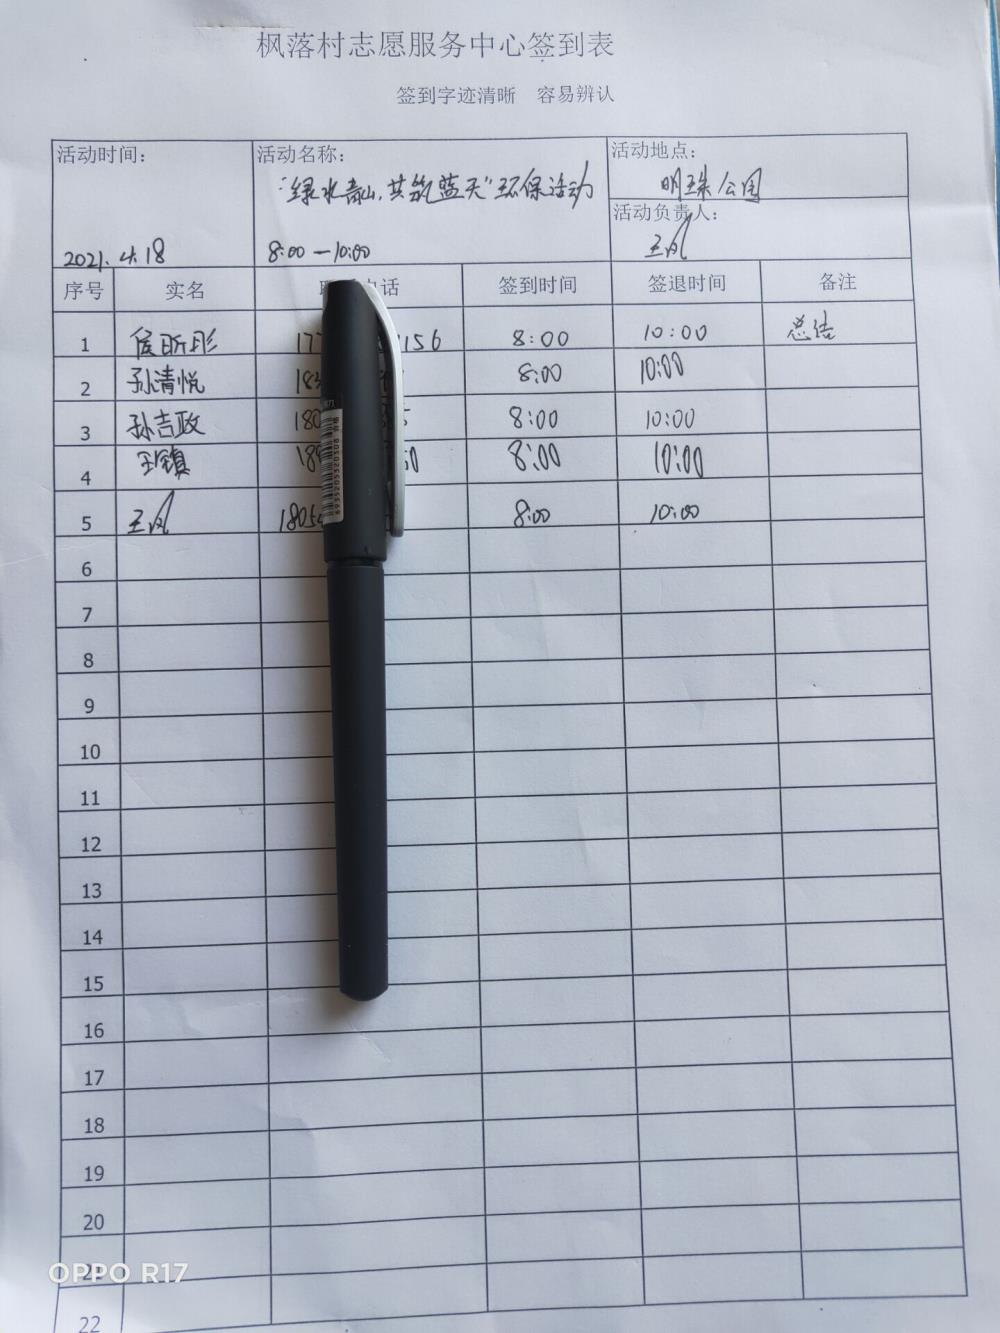 枫落村志愿服务中心签到表
签到字迹清晰 容易辨认
活动时间: 活动名称: 活动地点:
"绿水青山,共筑蓝天"环保活动 明珠公园
活动负责人:
王凤
2021.4.18 8:00—10:00
序号 实名 电话 签到时间 签退时间 备注
1 侯昕彤 17 156 8:00 10:00 总结
2 孙清悦 18 8:00 10:00
3 孙吉政 180 5 8:00 10:00
4 18 50 8:00 10:00
5 王凤 1805 8:00 10:00
6
7
8
9
10
11
12
13
14
15
16
17
18
19
20
21
22
6935205320308
OPPO R17